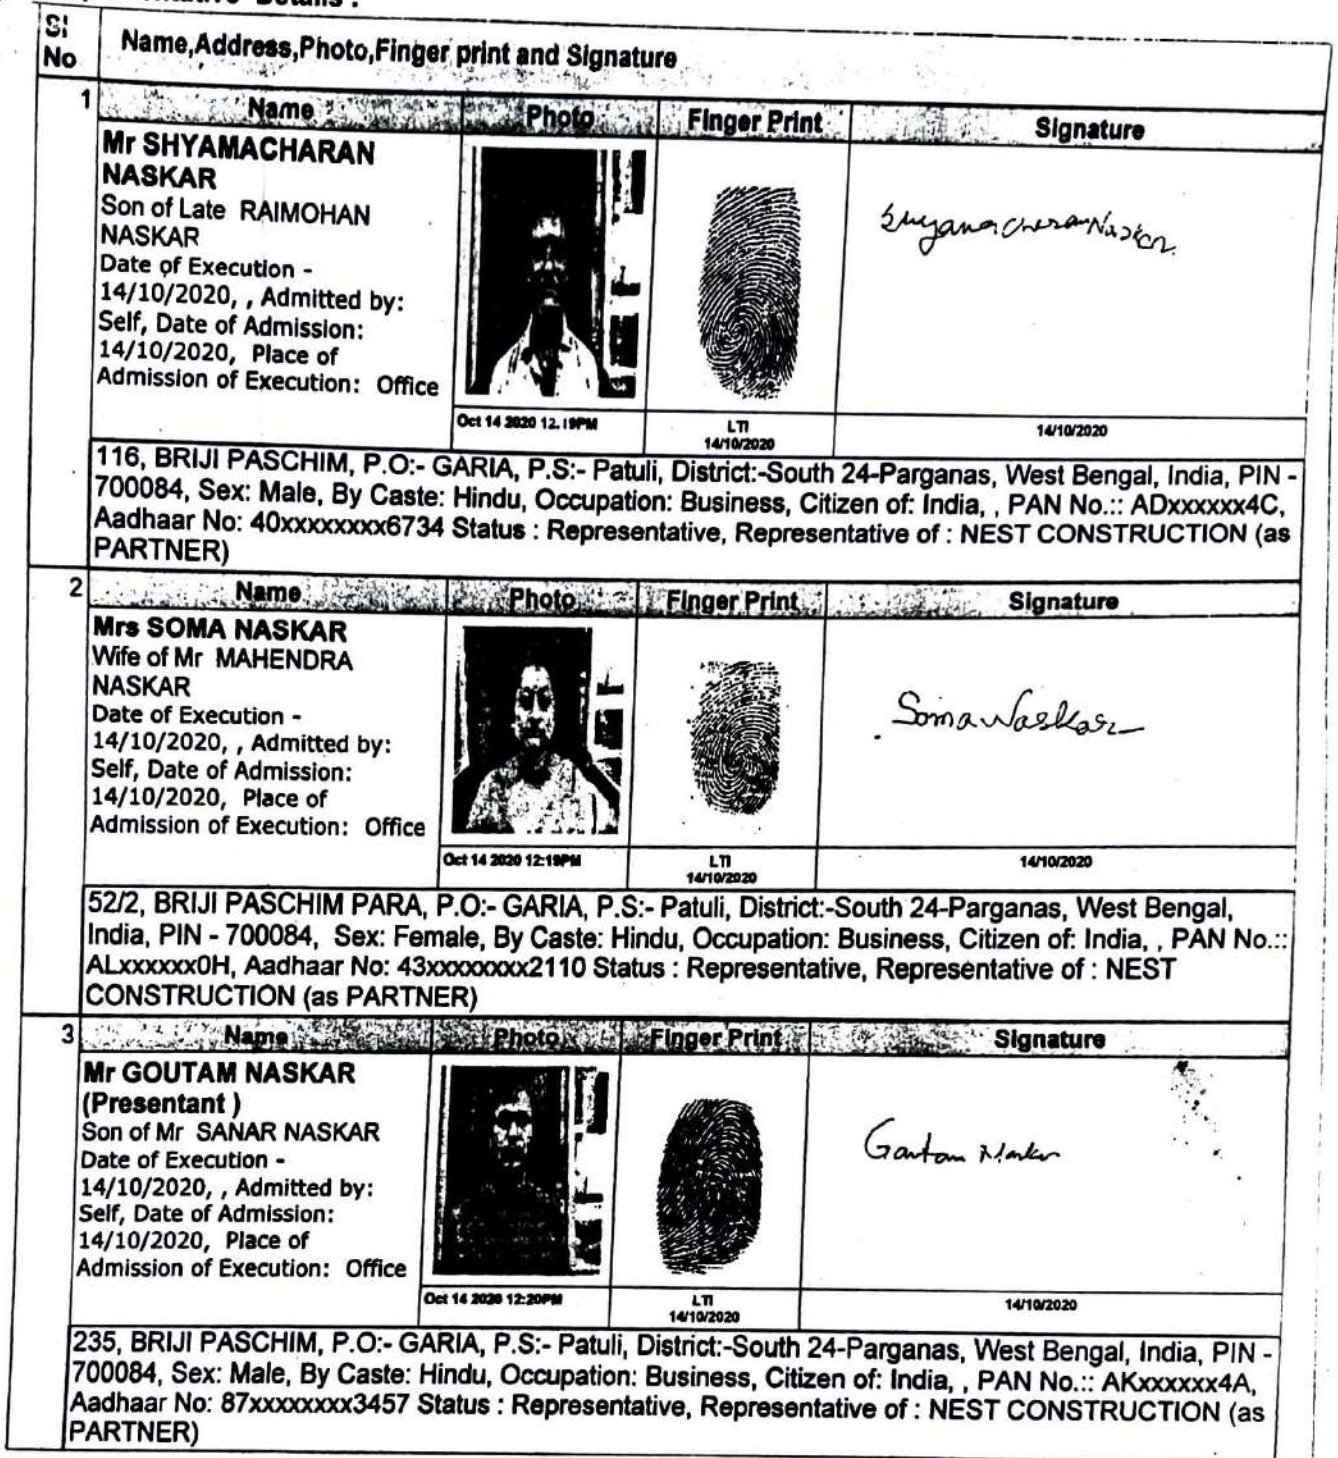 Details :
Sl No Name,Address,Photo,Finger print and Signature
1 Name Photo Finger Print Signature
Mr SHYAMACHARAN
NASKAR
Son of Late RAIMOHAN
NASKAR
Date of Execution -
14/10/2020, , Admitted by:
Self, Date of Admission:
14/10/2020, Place of
Admission of Execution: Office
Oct 14 2020 12:19PM LTI 14/10/2020 14/10/2020
116, BRIJI PASCHIM, P.O:- GARIA, P.S:- Patuli, District:-South 24-Parganas, West Bengal, India, PIN -
700084, Sex: Male, By Caste: Hindu, Occupation: Business, Citizen of: India, , PAN No.:: ADxxxxxx4C,
Aadhaar No: 40xxxxxxxx6734 Status : Representative, Representative of : NEST CONSTRUCTION (as
PARTNER)
2 Name Photo Finger Print Signature
Mrs SOMA NASKAR
Wife of Mr MAHENDRA
NASKAR
Date of Execution -
14/10/2020, , Admitted by:
Self, Date of Admission:
14/10/2020, Place of
Admission of Execution: Office
Soma Naskar
Oct 14 2020 12:19PM LTI 14/10/2020 14/10/2020
52/2, BRIJI PASCHIM PARA, P.O:- GARIA, P.S:- Patuli, District:-South 24-Parganas, West Bengal,
India, PIN - 700084, Sex: Female, By Caste: Hindu, Occupation: Business, Citizen of: India, , PAN No.::
ALxxxxxx0H, Aadhaar No: 43xxxxxxxx2110 Status : Representative, Representative of : NEST
CONSTRUCTION (as PARTNER)
3 Name Photo Finger Print Signature
Mr GOUTAM NASKAR
(Presentant )
Son of Mr SANAR NASKAR
Date of Execution -
14/10/2020, , Admitted by:
Self, Date of Admission:
14/10/2020, Place of
Admission of Execution: Office
Oct 14 2020 12:20PM LTI 14/10/2020 14/10/2020
235, BRIJI PASCHIM, P.O:- GARIA, P.S:- Patuli, District:-South 24-Parganas, West Bengal, India, PIN -
700084, Sex: Male, By Caste: Hindu, Occupation: Business, Citizen of: India, , PAN No.:: AKxxxxxx4A,
Aadhaar No: 87xxxxxxxx3457 Status : Representative, Representative of : NEST CONSTRUCTION (as
PARTNER)